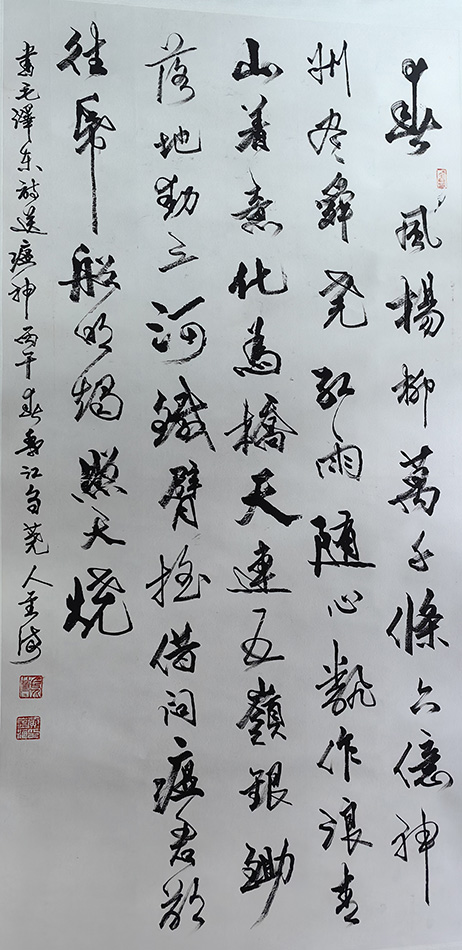 春風揚柳萬千條六億神
州盡舜堯紅雨随心翻作浪青
山着意化為橋天連五嶺銀鋤
落地動三河鐵臂摇借问瘟君欲
往帋船明燭照天燒
書毛澤東詩送瘟神丙午春粤江芻蕘人